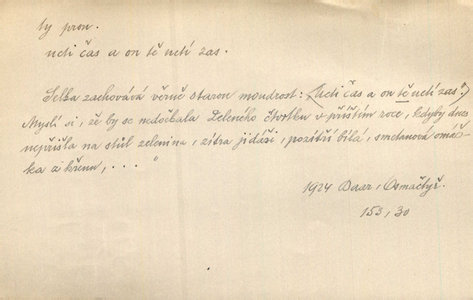 ty pron.
ucti čas a on tě uctí zas.
Selka zachovává věrně starou moudrost: „Ucti čas a on tě uctí zas.“
Myslí si, že by se nedočkala Zeleného čtvrtku v příštím roce, kdyby dnes
nepřišla na stůl zelenina, zítra jidáši, pozítří bílá, smetanová omáč-
ka z křenu, . . . "
1924 Baar, Osmačtyř.
153, 30